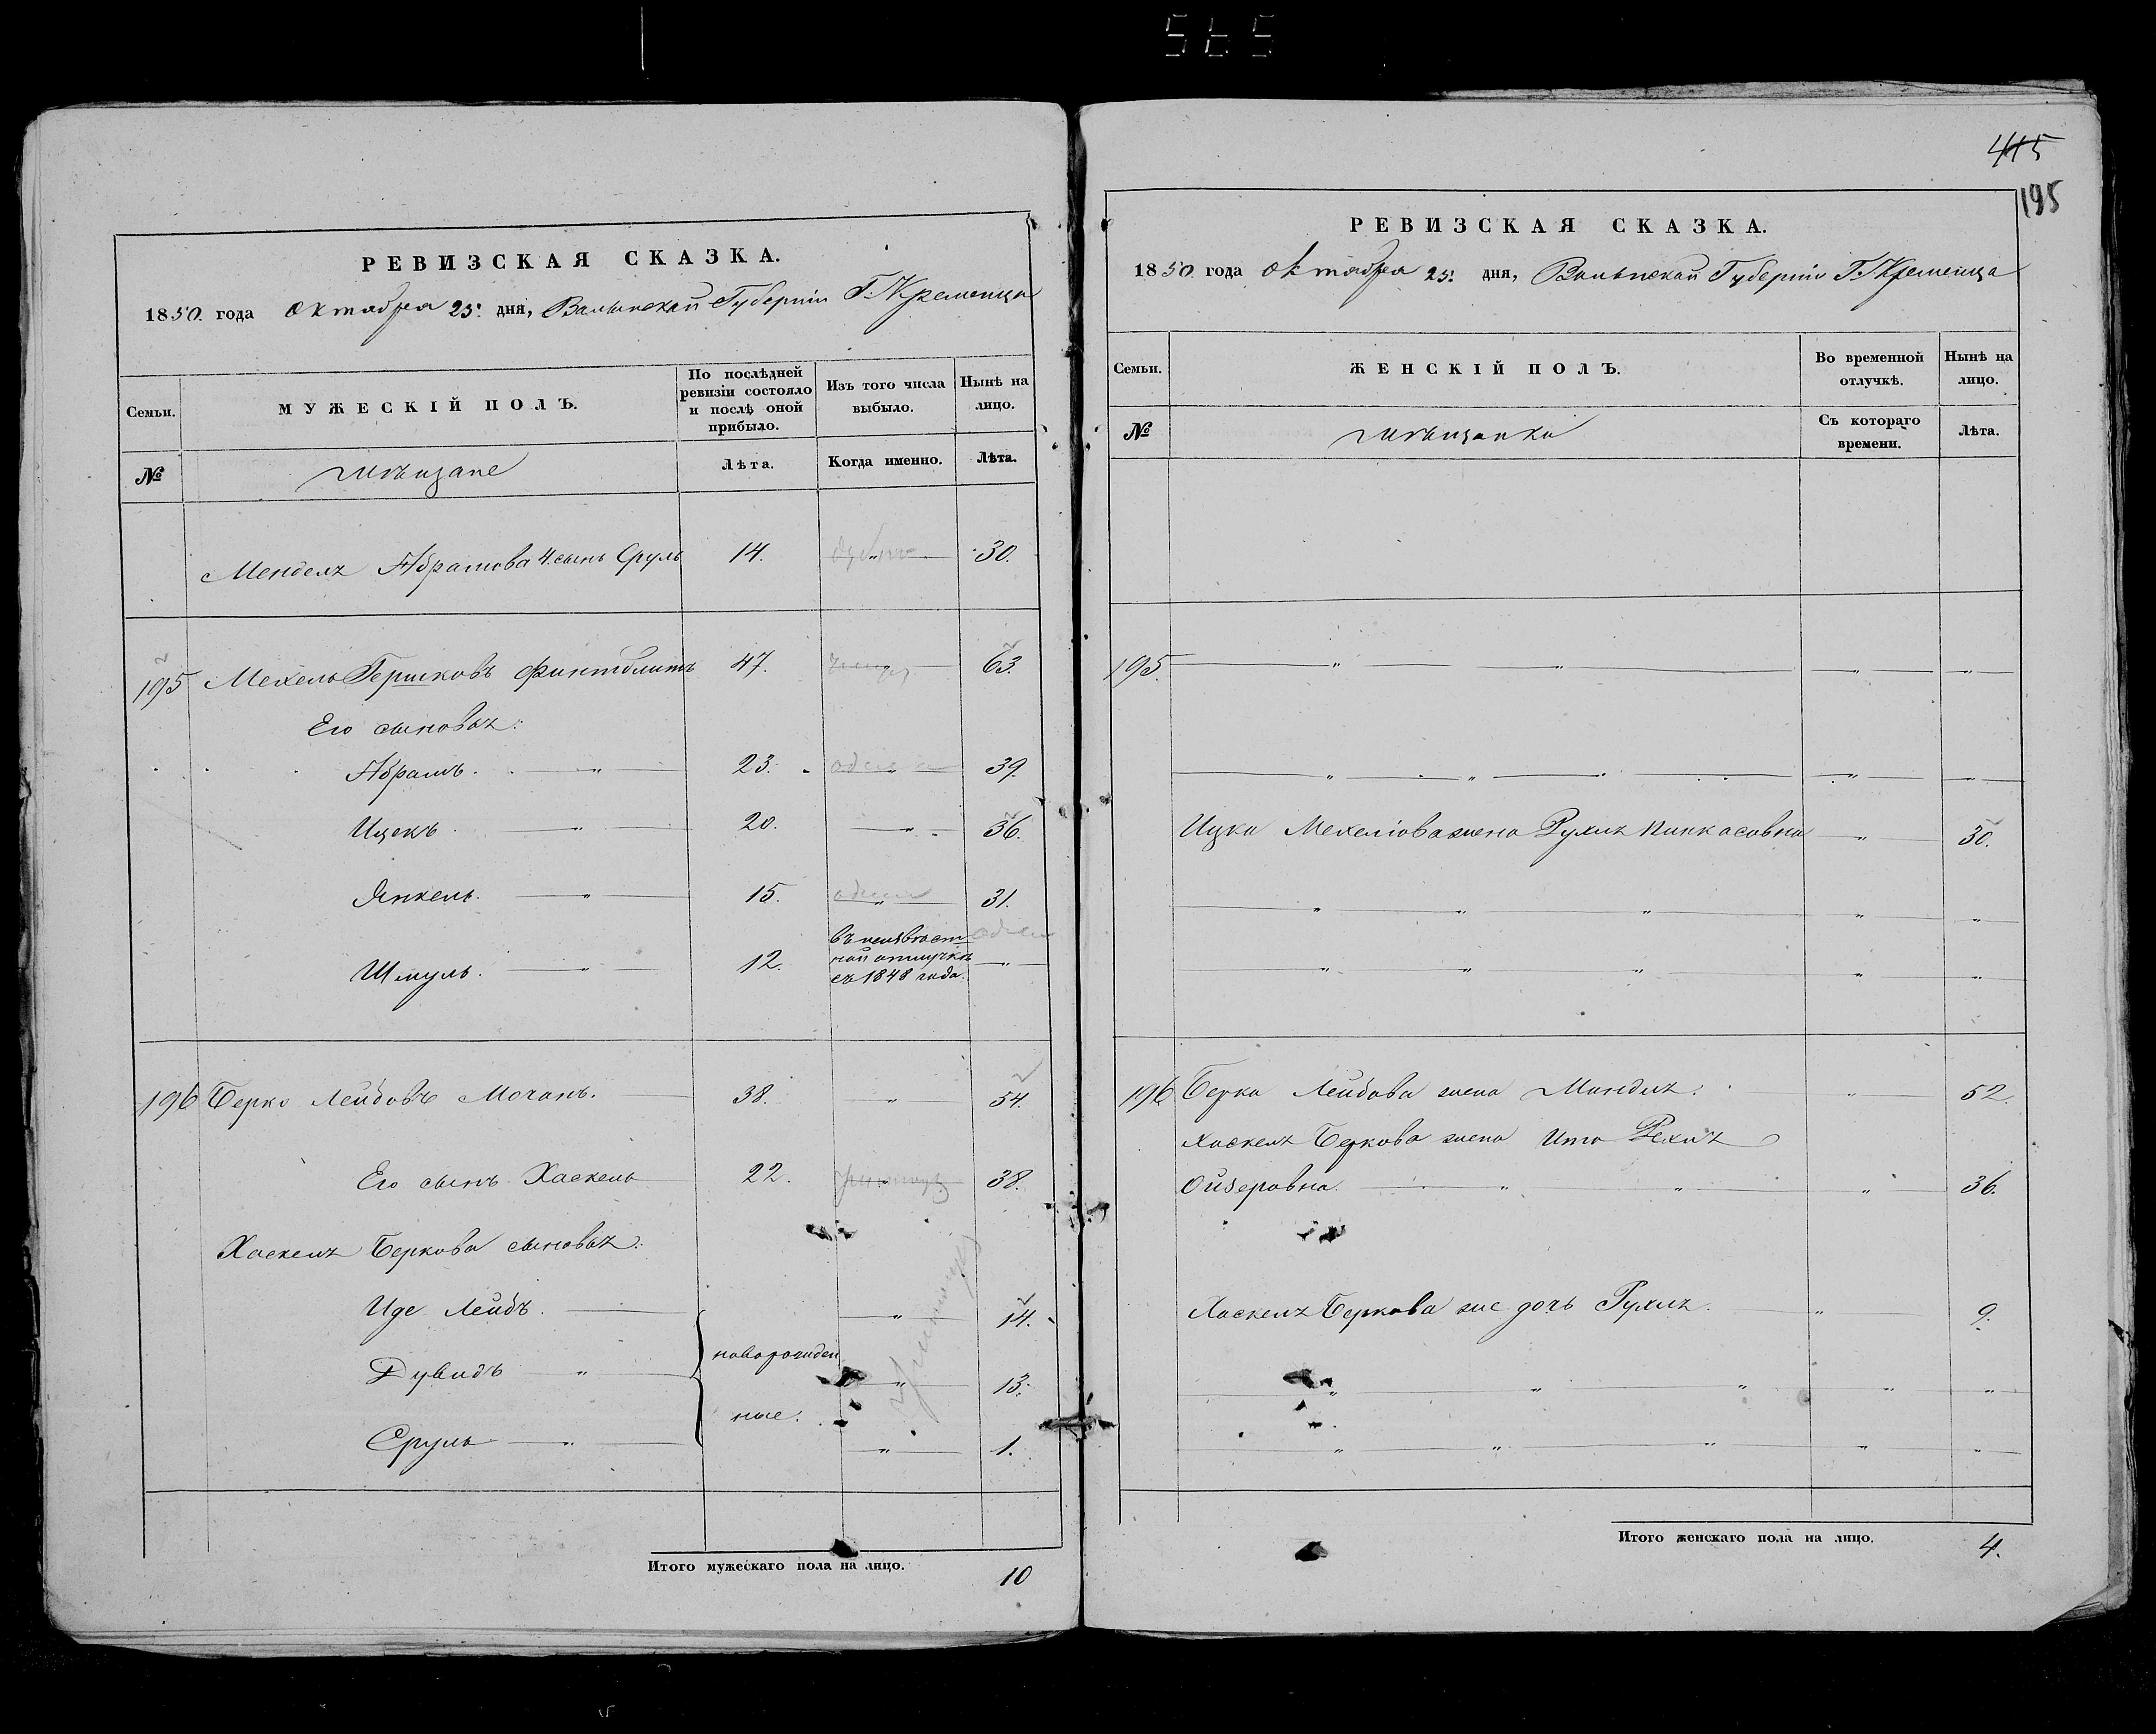 565
РЕВИЗСКАЯ СКАЗКА.
1850. года Октября 25. дня, Волынской Губерніи Г. Кременца
Семьи.
МУЖЕСКІЙ ПОЛЪ.
По послѣдней ревизіи состояло и послѣ оной прибыло.
Изъ того числа выбыло.
Нынѣ на лицо.
№
мѣщане
Лѣта.
Когда именно.
Лѣта.
Менделя Абрамова 4. сынъ Сруль 14. 30.
195 Мехель Гершковъ Финтблитъ 47. 63.
Его сыновья:
Абрамъ. „ 23. одесса 39.
Ицекъ. „ 20. „ 36.
Янкель. „ 15. одесса 31.
Шмуль. „ 12. въ неизвѣст
ной отлучкѣ
съ 1848 года. „
196 Берко Лейбовъ Мочанъ. 38. „ 54.
Его сынъ Хаскель 22. 38.
Хаскеля Беркова сыновья:
Иде Лейбъ. „ 14.
Дувидъ „ новорожден
ные. „ 13.
Сруль „ „ 1.
Итого мужескаго пола на лицо. 10
415
195
РЕВИЗСКАЯ СКАЗКА.
1850. года Октября 25. дня, Волынской Губерніи Г. Кременца
Семьи.
ЖЕНСКІЙ ПОЛЪ.
Во временной отлучкѣ.
Нынѣ на лицо.
№
мѣщанки
Съ котораго времени.
Лѣта.
195. „ „ „ „
„ „ „ „
Ицка Мехелiова жена Рухля Пинкасовна „ 30.
„ „ „ „ „
„ „ „ „ „
196 Берка Лейбова жена Миндля. „ 52.
Хаскеля Беркова жена Ита Рехля
Ойзеровна. „ „ „ 36.
Хаскеля Беркова же дочь Рухля. „ 9.
„ „ „ „ „
„ „ „ „ „
Итого женскаго пола на лицо. 4.